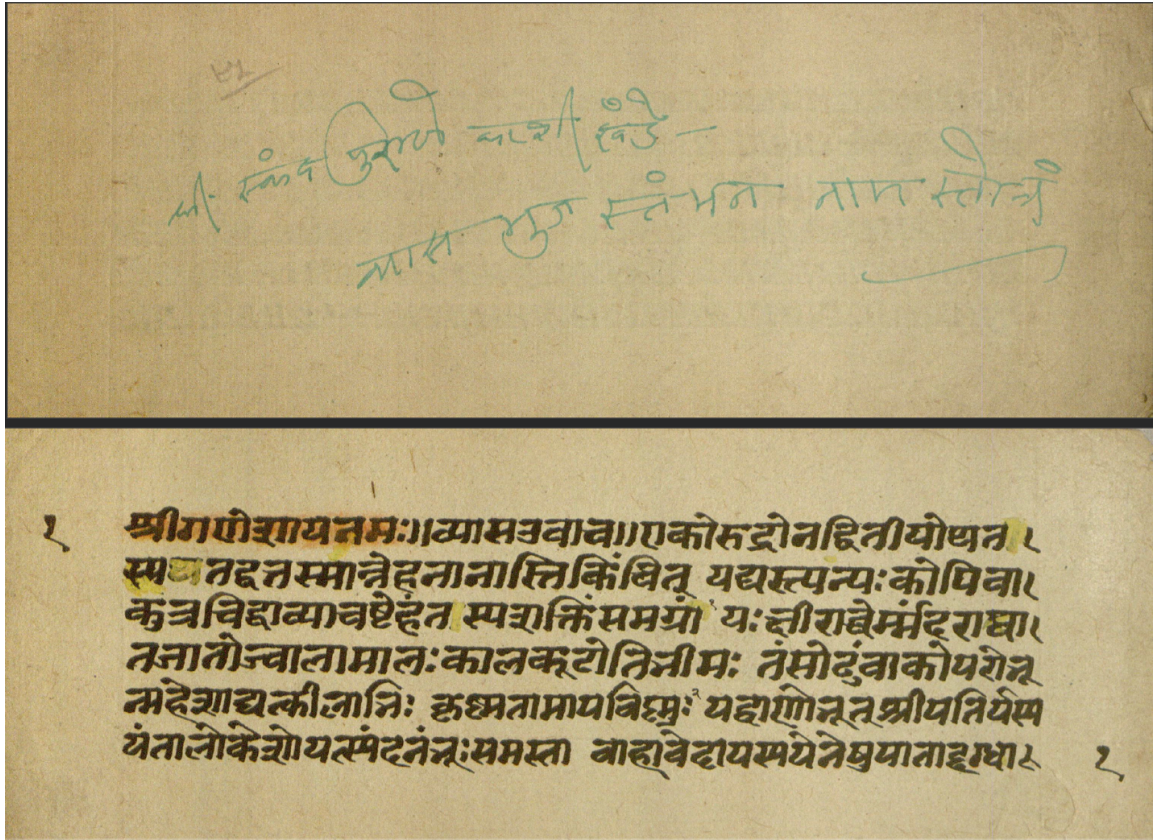 ४१
श्री स्कंद पुराणे काशी खंडे —
व्यास भुज स्तंभन नाम स्तोत्रं
१ श्रीगणेशायनमः॥व्यासउवाच॥एकोरुद्रोनद्वितीयोयत
स्य तद्व्रतस्मान्नेहनानास्तिकिंचित् यद्यस्त्यन्यःकोपिवा
कुत्रचिद्वाव्याचष्टेहंत स्यशक्तिंसमग्रां यःक्षीराब्धेर्म्मंदराघा
तजातोज्वालामालःकालकूटोतिभीमः तंसोढुंवाकोपरोभू
न्महेशाद्यत्कीलाभिः कृष्मतामापविष्मुः यद्बाणोभूत्श्रीपतिर्यस्य
यंतालोकेशोयत्स्पंदनंभूःसमस्ता वाहावेदायस्पयेनेषुपाताद्दग्धा १